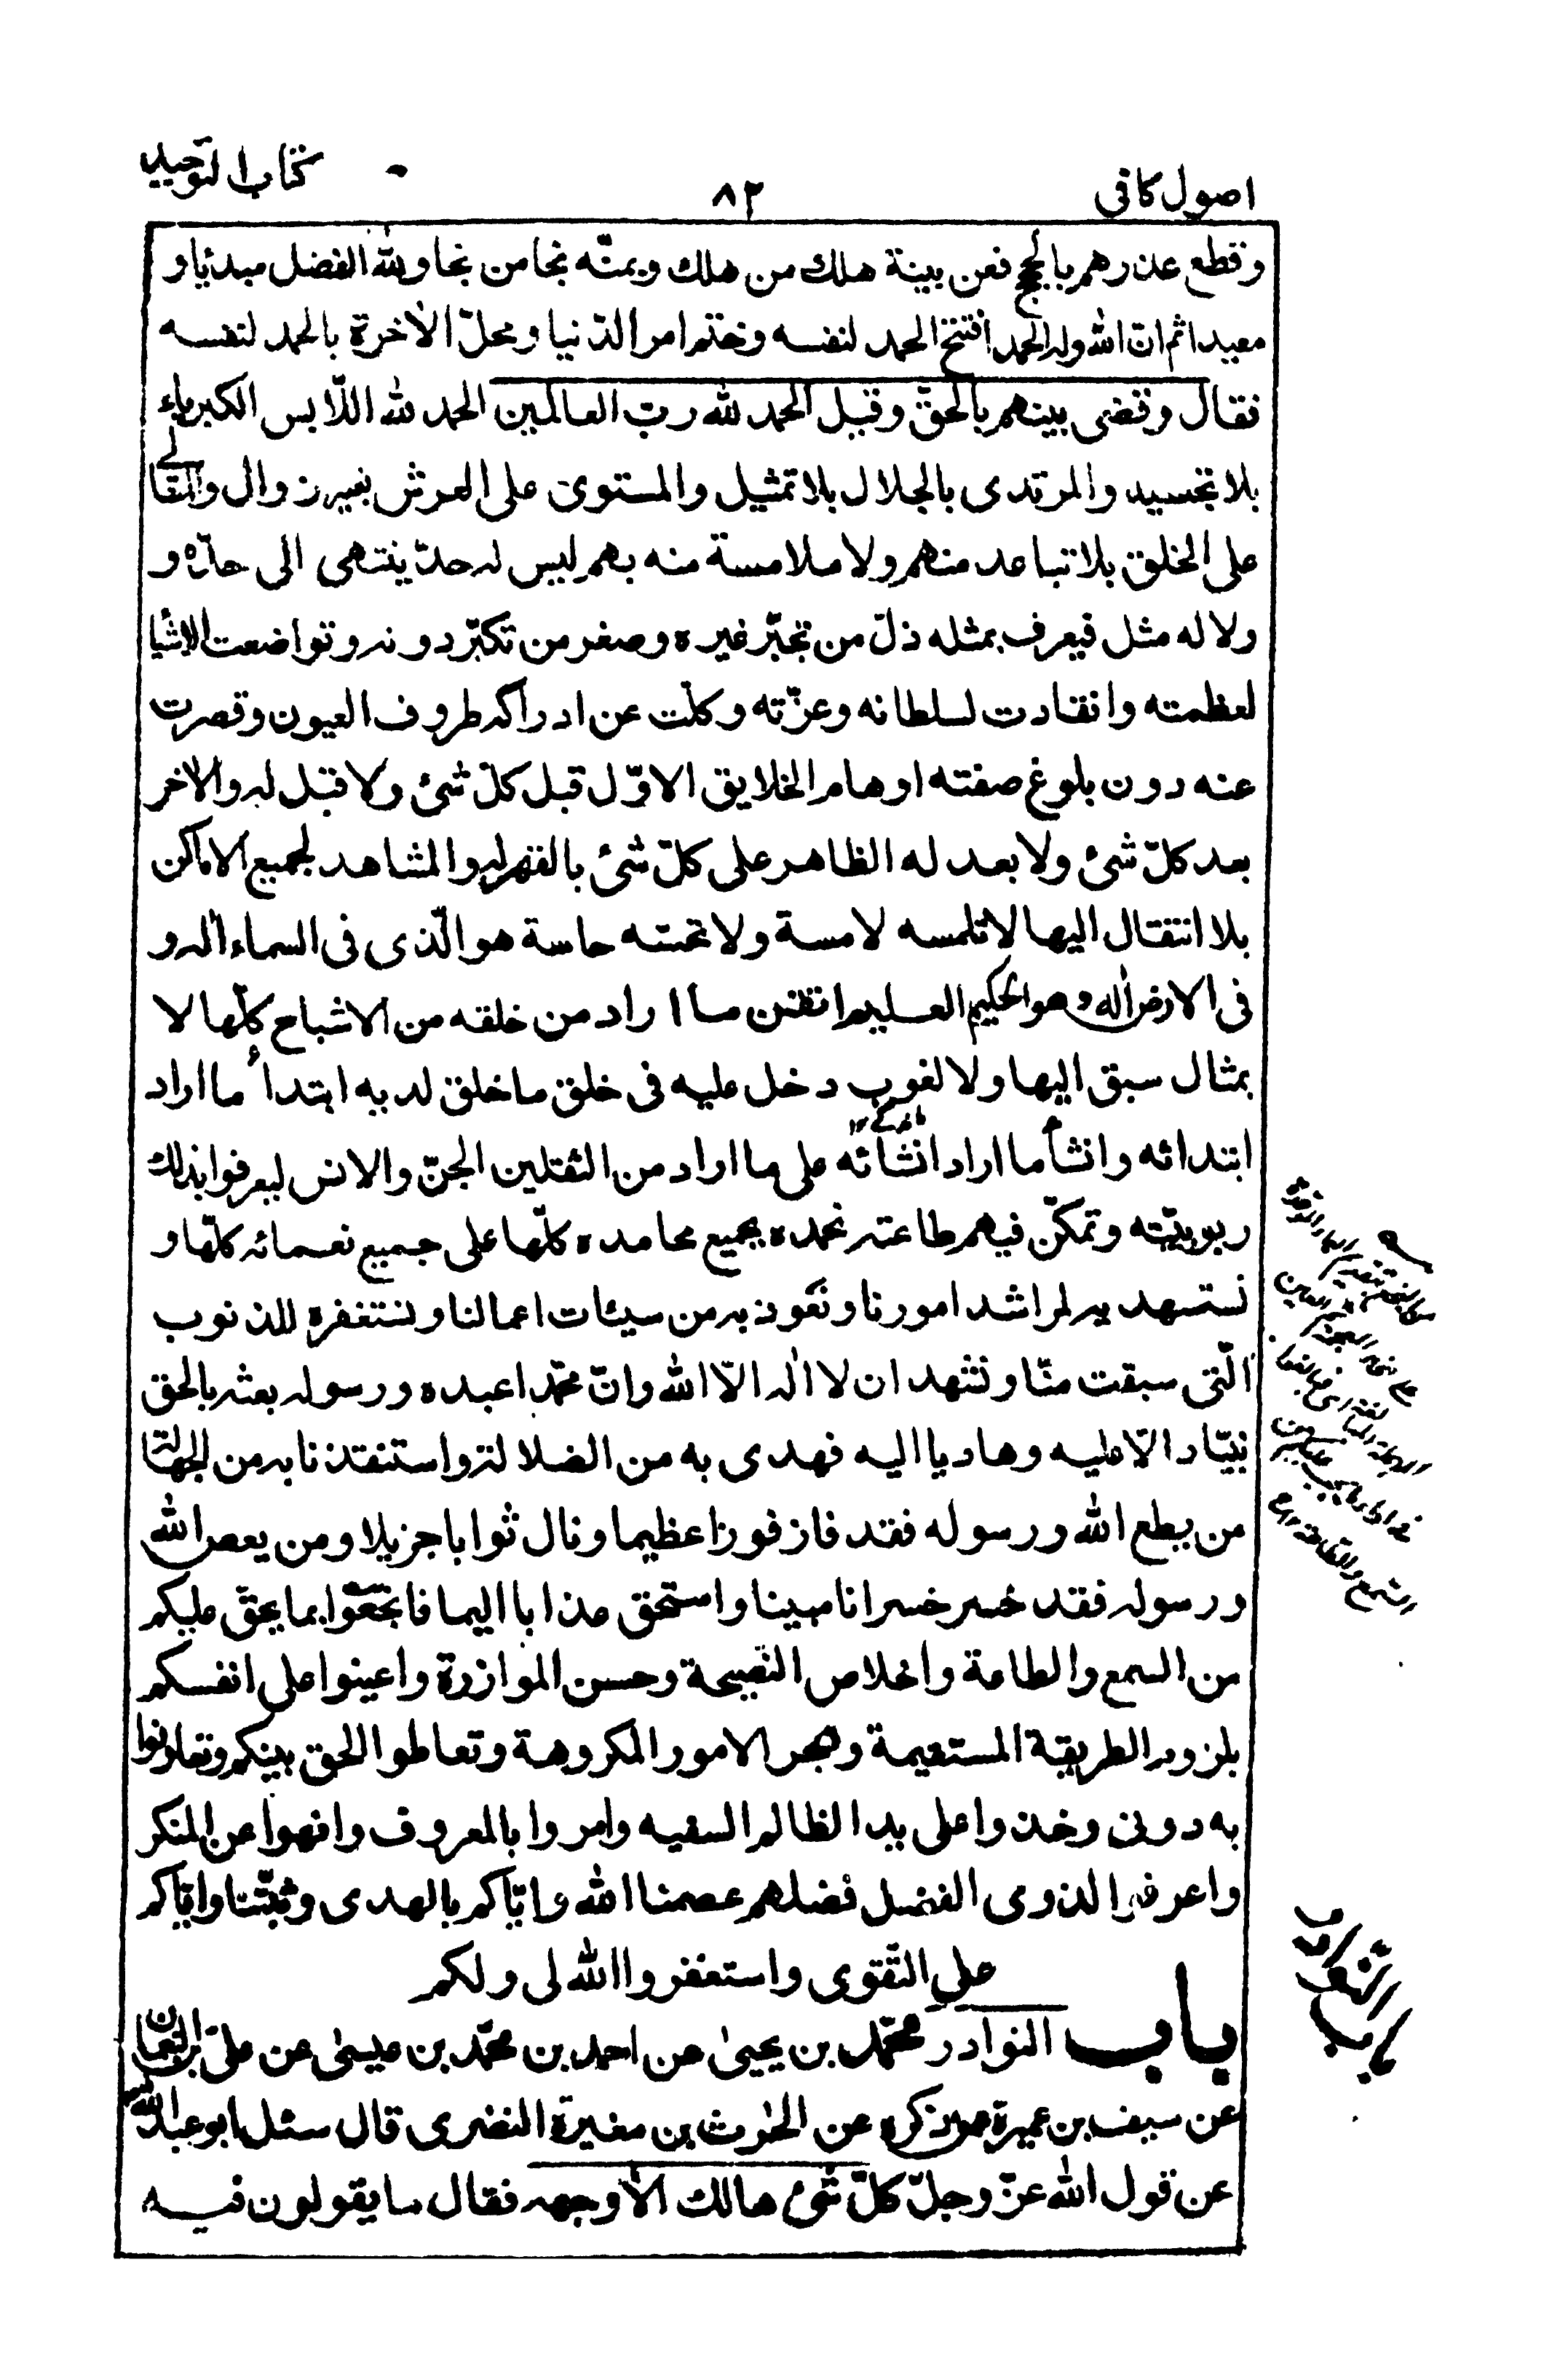 اصول كافى ٨٢ كتاب التوحيد
وقطع عذرهم بالحجج فعن بينة هلك من هلك وبمنّه نجا من نجا ولله الفضل مبدئا و
معيدا ثم انّ الله وله الحمد افتتح الحمد لنفسه وختم امر الدّنيا ومحلّ الاخرة بالحمد لنفسه
فقال وقضى بينهم بالحقّ وقيل الحمد لله ربّ العالمين الحمد لله اللّابس الكبرياء
بلا تجسيد والمرتدى بالجلال بلا تمثيل والمستوى على العرش بغير زوال والمتعالى
على الخلق بلا تباعد منهم ولا ملامسة منه بهم ليس له حدّ ينتهى الى حدّه و
ولا له مثل فيعرف بمثله ذلّ من تجبّر غيره وصغر من تكبّر دونه وتواضعت الاشيا
لعظمته وانقادت لسلطانه وعزّته وكلّت عن ادراكه طروف العيون وقصرت
عنه دون بلوغ صفته اوهام الخلايق الاوّل قبل كلّ شئ ولا قبل له والاخر
بعد كلّ شئ ولا بعد له الظاهر على كلّ شئ بالقهر له والمشاهد لجميع الاماكن
بلا انتقال اليها لا تلمسه لامسة ولا تحسّه حاسة هو الّذى فى السماء اله و
فى الارض اله وهو الحكيم العليم اتقن ما اراد من خلقه من الاشباح كلّها لا
بمثال سبق اليها ولا لغوب دخل عليه فى خلق ما خلق لديه ابتدأ ما اراد
ابتدائه وانشأ ما اراد انشائه على ما اراد من الثقلين الجنّ والانس ليعرفوا بذلك
ربوبيّته وتمكّن فيهم طاعته نحمده بجميع محامده كلّها على جميع نعمائه كلّها و
نستهديه لمراشد امورنا ونعوذ به من سيئات اعمالنا ونستغفره للذنوب
الّتى سبقت منّا ونشهد ان لا اله الّا الله وانّ محمّدا عبده ورسوله بعثه بالحق
نبيّا دالّا عليه وهاديا اليه فهدى به من الضلالة واستنقذنا به من الجهالة
من يطع الله ورسوله فقد فاز فوزا عظيما ونال ثوابا جزيلا ومن يعص الله
ورسوله فقد خسر خسرانا مبينا واستحق عذابا اليما فابخعوا بما يحقّ عليكم
من السمع والطاعة واخلاص النّصيحة وحسن الموازرة واعينوا على انفسكم
بلزوم الطريقة المستقيمة وهجر الامور المكروهة وتعاطوا الحق بينكم وتعاونوا
به دونى وخذوا على يد الظالم السفيه وامروا بالمعروف وانهوا عن المنكر
واعرفوا لذوى الفضل فضلهم عصمنا الله وايّاكم بالهدى وثبّتنا وايّاكم
على التّقوى واستغفروا الله لى ولكم
باب النوادر محمّد بن يحيى عن احمد بن محمّد بن عيسى عن علىّ بن النعمان
عن سيف بن عميرة عمن ذكره عن الحرث بن مغيرة النضرى قال سئل ابو عبد الله
عن قول الله عزّ وجلّ كلّ شئ هالك الّا وجهه فقال ما يقولون فيه
باب النوادر